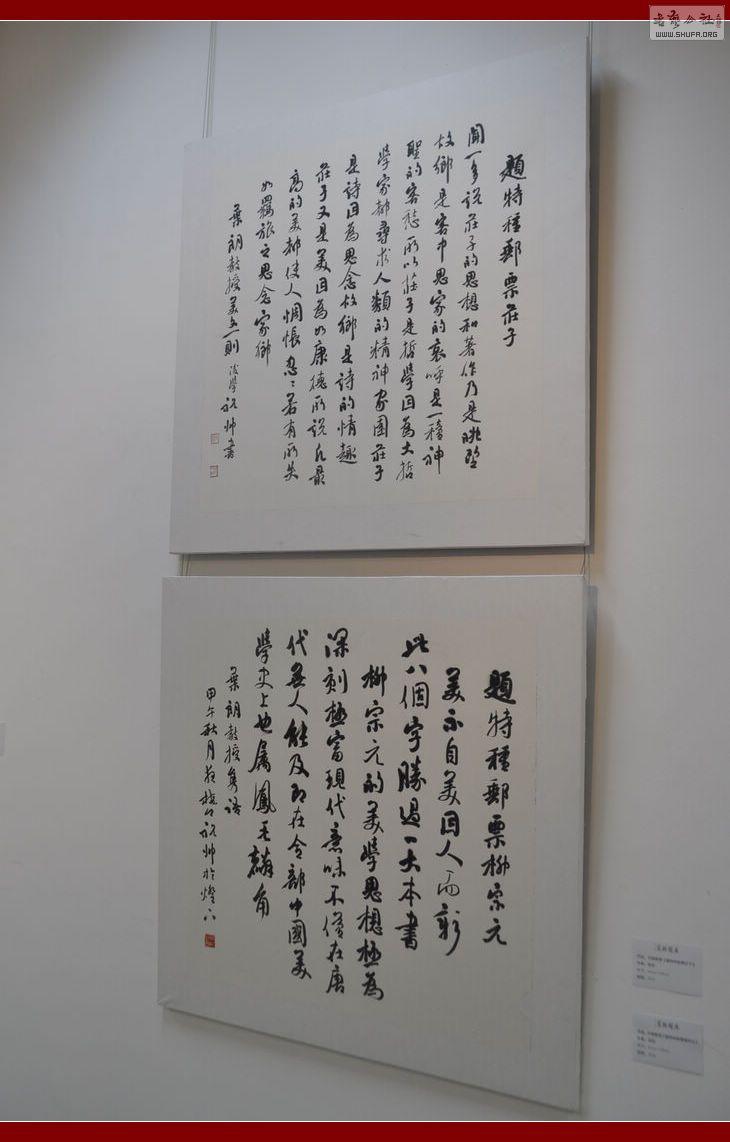 書藝公社
WWW.SHUFA.ORG
題特種郵票莊子
聞一多說莊子的思想和著作乃是眺望
故鄉是客中思家的哀呼是一種神
聖的客愁所以莊子是哲學因為大哲
學家都尋求人類的精神家園莊子
是詩因為思念故鄉是詩的情趣
莊子又是美因為如康德所說凡最
高的美都使人惆悵忽忽若有所失
如羈旅之思念家鄉
葉朗教授美文一則 後學祝帥書
題特種郵票柳宗元
美不自美因人而彰
此八個字勝過一大本書
柳宗元的美學思想極為
深刻極富現代意味不僅在唐
代無人能及即在全部中國美
學史上也屬鳳毛麟角
葉朗教授雋語
甲午秋月祝帥於燈下